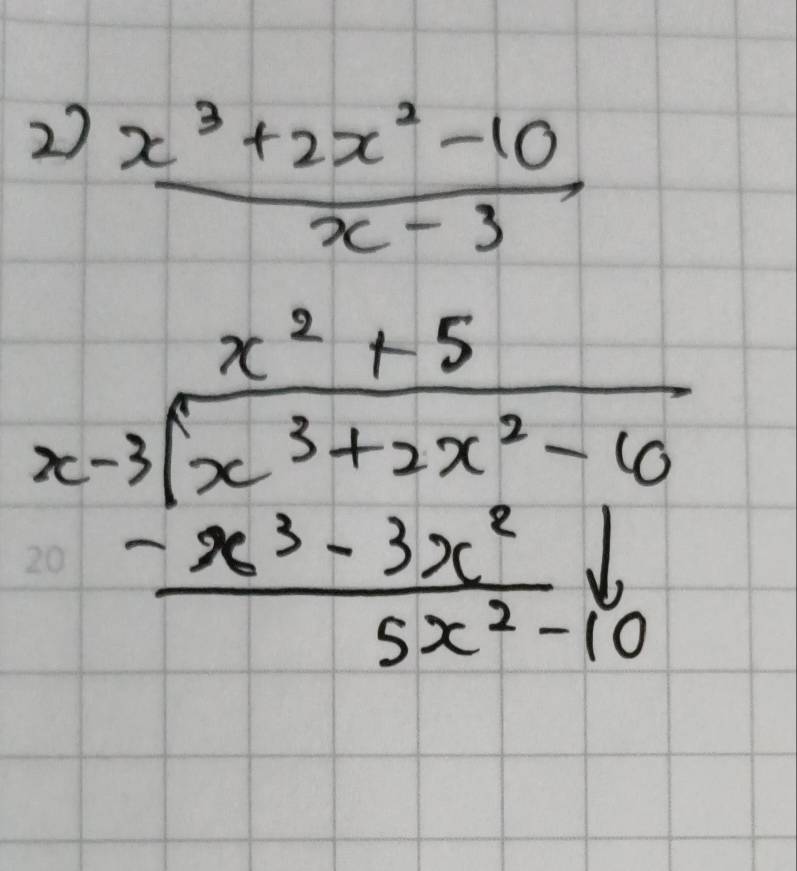 2) x³ + 2x² - 10
x - 3
x² + 5
x - 3 x³ + 2x² - 10
- x³ - 3x² ↓
20
5x² - 10